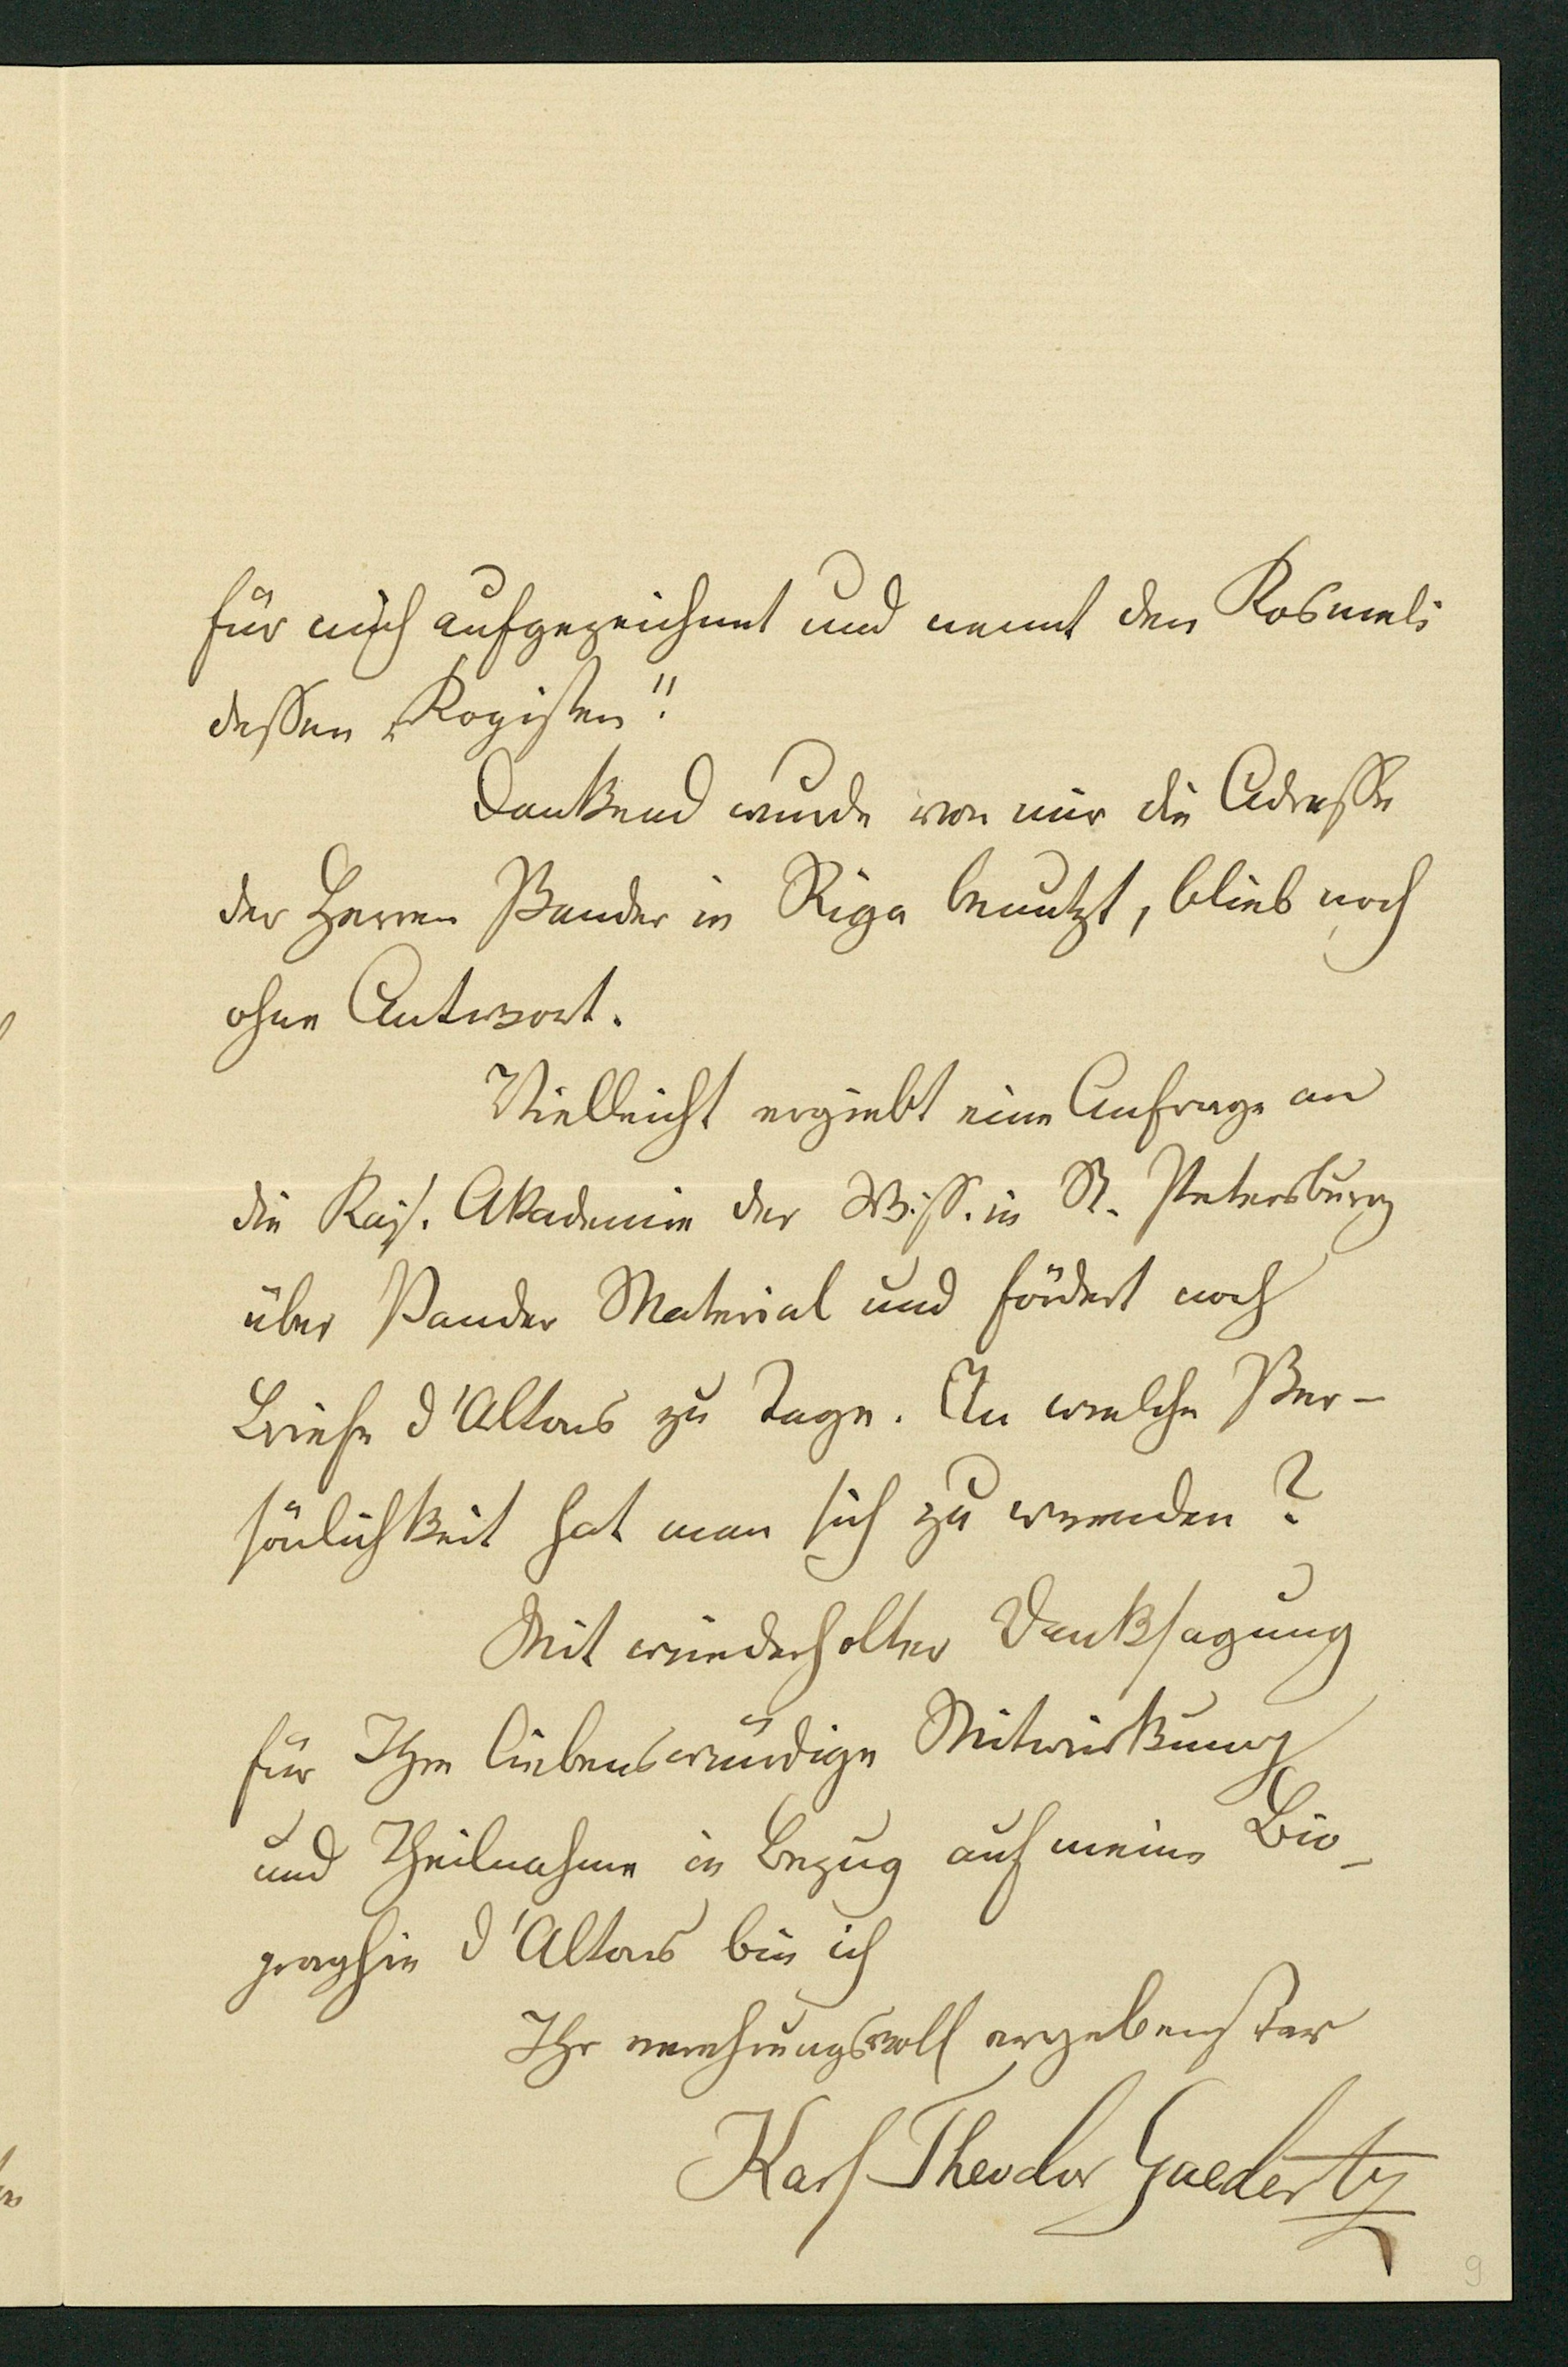 für mich aufgezeichnet und nennt den Kosmeli
dessen „Kopisten".
Dankend wurde von mir die Adresse
der Herren Pander in Riga benutzt, blieb noch
ohne Antwort.
Vielleicht ergiebt eine Anfrage an
die Kais. Akademie der Wiss. in St. Petersburg
über Pander Material und fördert noch
Briefe d'Altons zu Tage. An welche Per-
sönlichkeit hat man sich zu wenden?
Mit wiederholter Danksagung
für Ihre liebenswürdige Mitwirkung
und Theilnahme in Bezug auf meine Bio-
graphie d'Altons bin ich
Ihr verehrungsvoll ergebenster
Karl Theodor Gaedertz
9